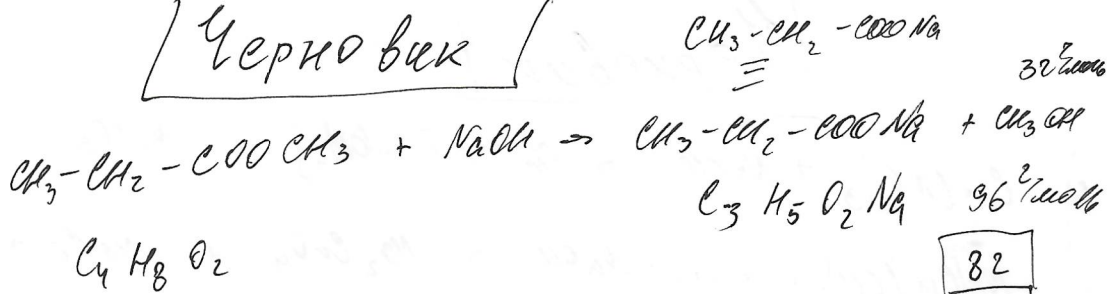 Черновик
CH₃-CH₂-COONa
32 г/моль
CH₃-CH₂-COOCH₃ + NaOH → CH₃-CH₂-COONa + CH₃OH
C₃H₅O₂Na 96 г/моль
C₄H₈O₂
82